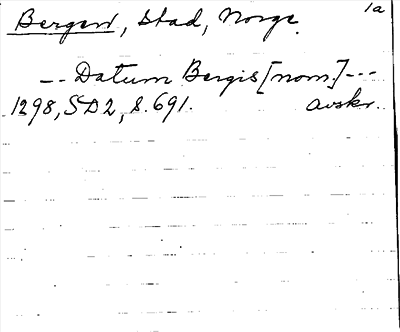 1a
Bergen, stad, Norge.
-- Datum Bergis [nom.] ---
1298, SD2, s. 691. avskr.